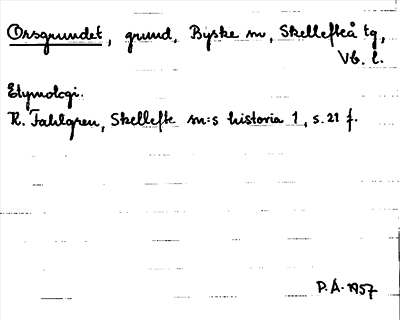 Orsgrundet, grund, Byske sn, Skellefteå tg,
Vb. l.
Etymologi.
K. Fahlgren, Skellefte sn:s historia 1, s. 21 f.
P.Å. 1957